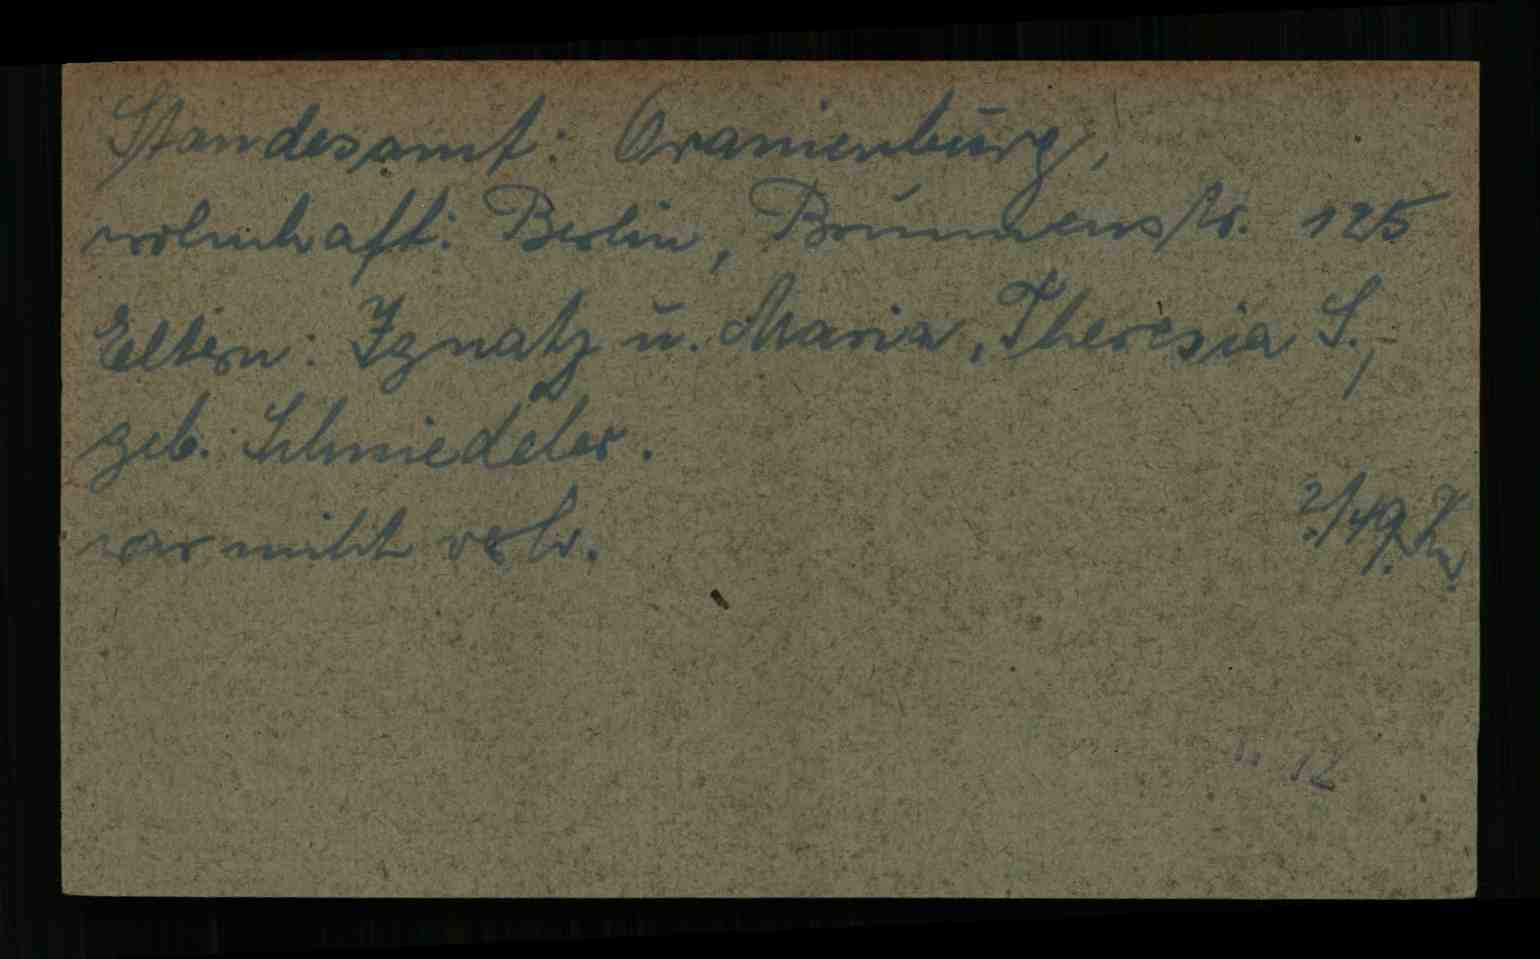 Standesamt: Oranienburg,
wohnhaft: Berlin, Brunnenstr. 125
Eltern: Ignatz u. Maria, Theresia S.,
geb. Schmiedeler.
war nicht verh.
2/49.
12